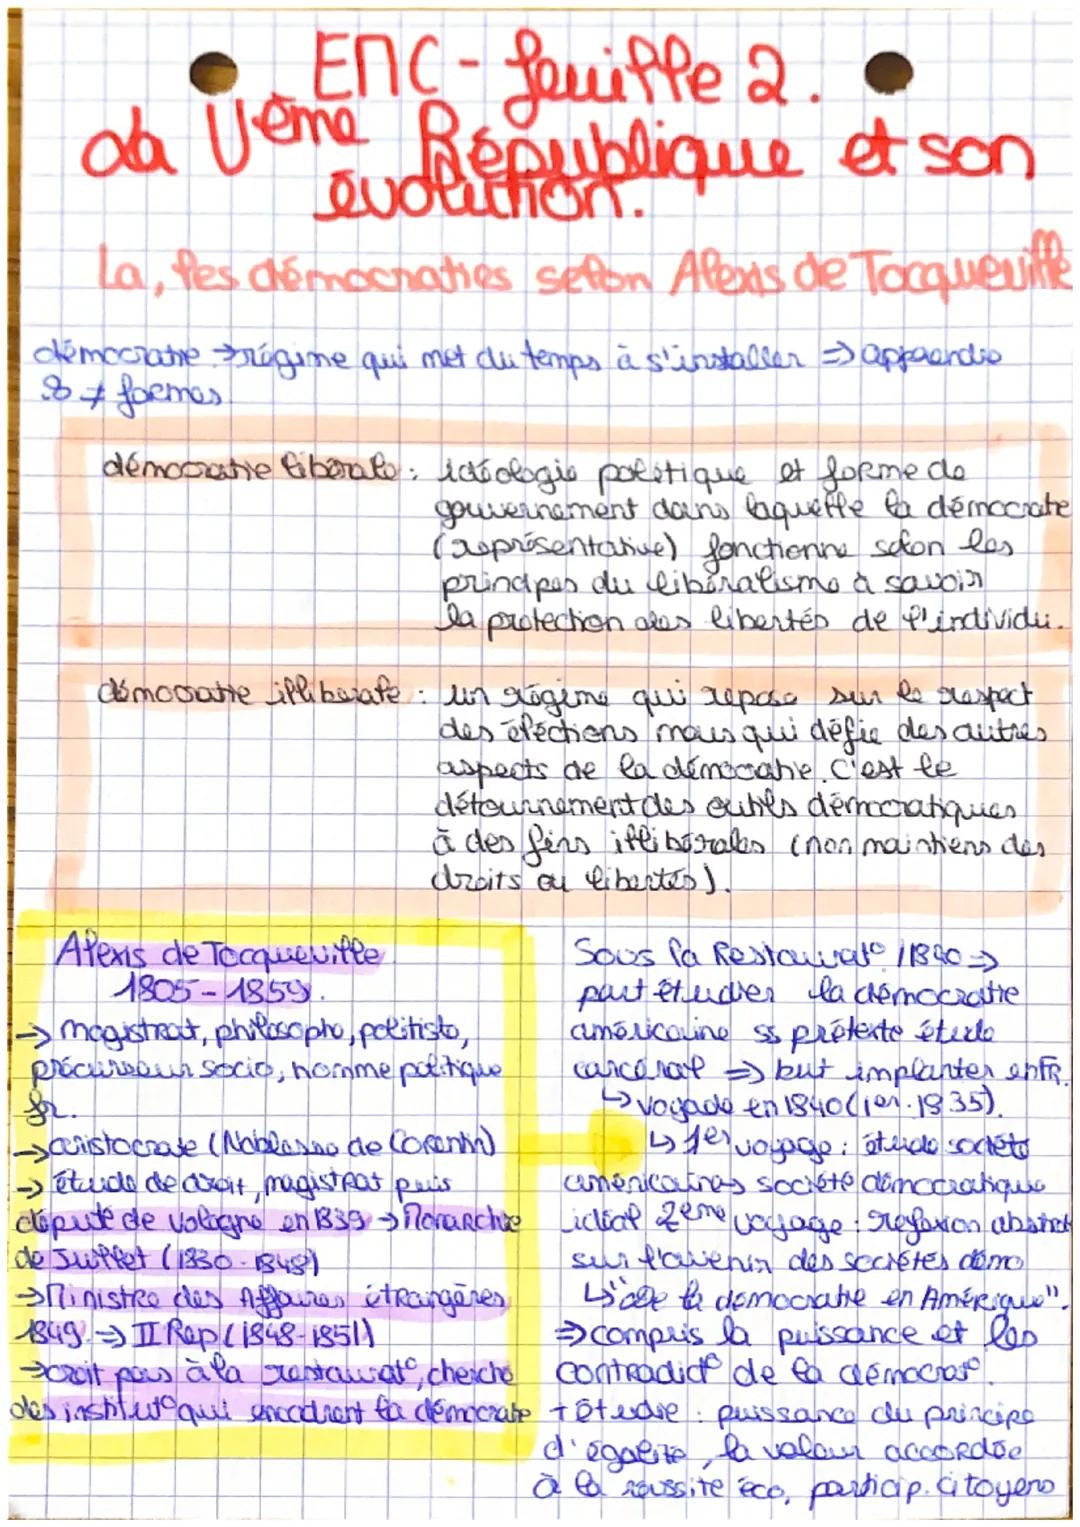 EMC - feuille 2.
La Vème République et son
évolution.
La, les démocraties selon Alexis de Tocqueville
démocratie → régime qui met du temps à s'installer ⇒ apprendre
≠ formes
démocratie libérale : idéologie politique et forme de
gouvernement dans laquelle la démocratie
(représentative) fonctionne selon les
principes du libéralisme à savoir
la protection des libertés de l'individu.
démocratie illibérale : un régime qui repose sur le respect
des éléctions mais qui défie des autres
aspects de la démocratie. C'est le
détournement des outils démocratiques
à des fins illibérales (non maintiens des
droits ou libertés).
Alexis de Tocqueville
1805 - 1859.
→ magistrat, philosophe, politiste,
précurseur socio, homme politique
fr.
→ aristocrate (Noblesse de Cotentin)
→ étude de droit, magistrat puis
député de Vologne en 1839 → Monarchie
de Juillet (1830-1848)
→ Ministre des Affaires étrangères
1849. ⇒ II Rep (1848-1851)
→ croit pas à la restaurat°, cherche
des institut° qui encadrent la démocratie
Sous la Restaurat° / 1840 ⇒
part étudier la démocratie
américaine ss prétexte étude
carcéral ⇒ but implanter en FR.
↳ voyade en 1840 (1er. 1835).
↳ 1er voyage : étude société
américaine → société démocratique
idéal 2ème voyage : reflexion abstrait
sur l'avenir des sociétés démo
↳ "de la démocratie en Amérique".
⇒ compris la puissance et les
contradict° de la démocrat°.
+ étudie : puissance du principe
d'égalité, la valeur accordée
à la réussite éco, particip. citoyens